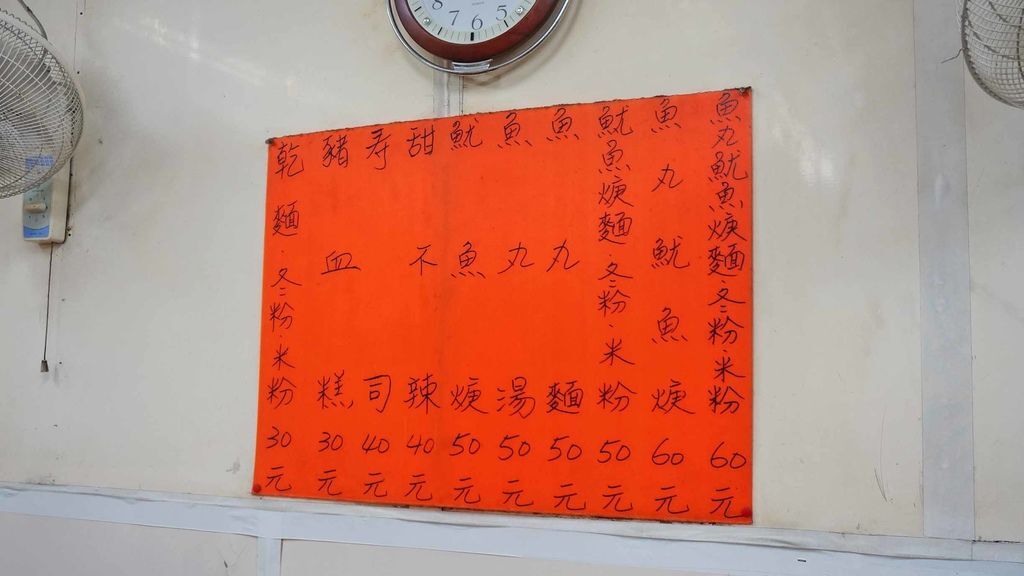 魚丸魷魚焿麵·冬粉·米粉60元
魚丸魷魚焿60元
魷魚焿麵·冬粉·米粉50元
魚丸麵50元
魚丸湯50元
魷魚焿50元
甜不辣40元
寿司40元
豬血糕30元
乾麵·冬粉·米粉30元
8 7 6 5